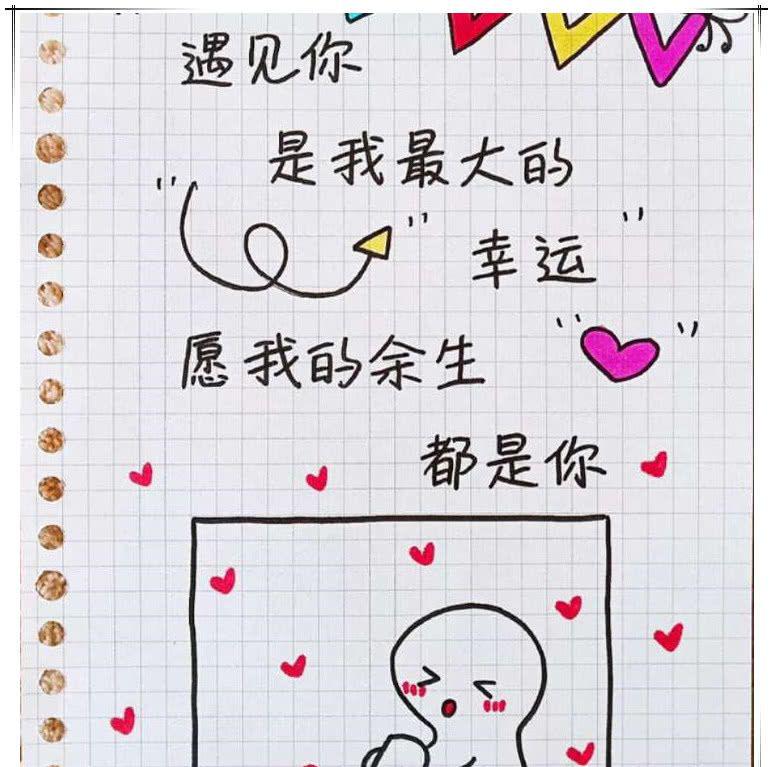 遇见你
是我最大的
幸运
愿我的余生
都是你